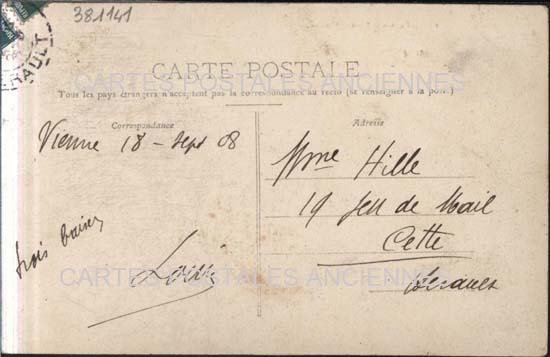 381141
ERAULT
CARTE POSTALE
CARTES POSTALES ANCIENNES
Tous les pays étrangers n'acceptent pas la correspondance au recto (se renseigner à la poste)
Correspondance
Adresse
Vienne 18 - Sept 08
Mme Hille
19 Jeu de Mail
Cette
Hérault
trois baisers
Louis
CARTES POSTALES ANCIENNES